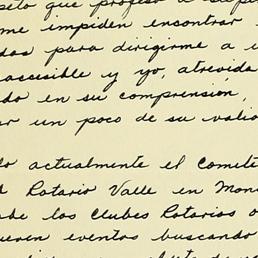 peto que profeso a
me impiden encontrar
das para dirigirme a u
accesible y yo, atrevida
do en su comprensión,
ar un poco de su valio
do actualmente el Comité
Rotario Valle en Mon
be los Clubes Rotarios
eren eventos buscando